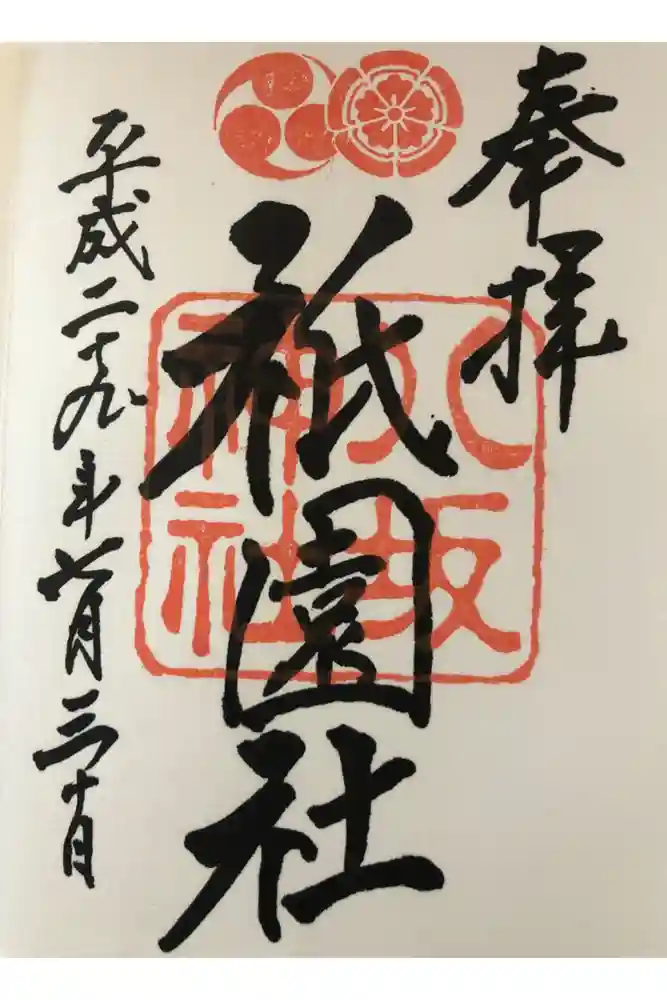 奉拝
八坂
神社
祇園社
平成二十九年七月三十日